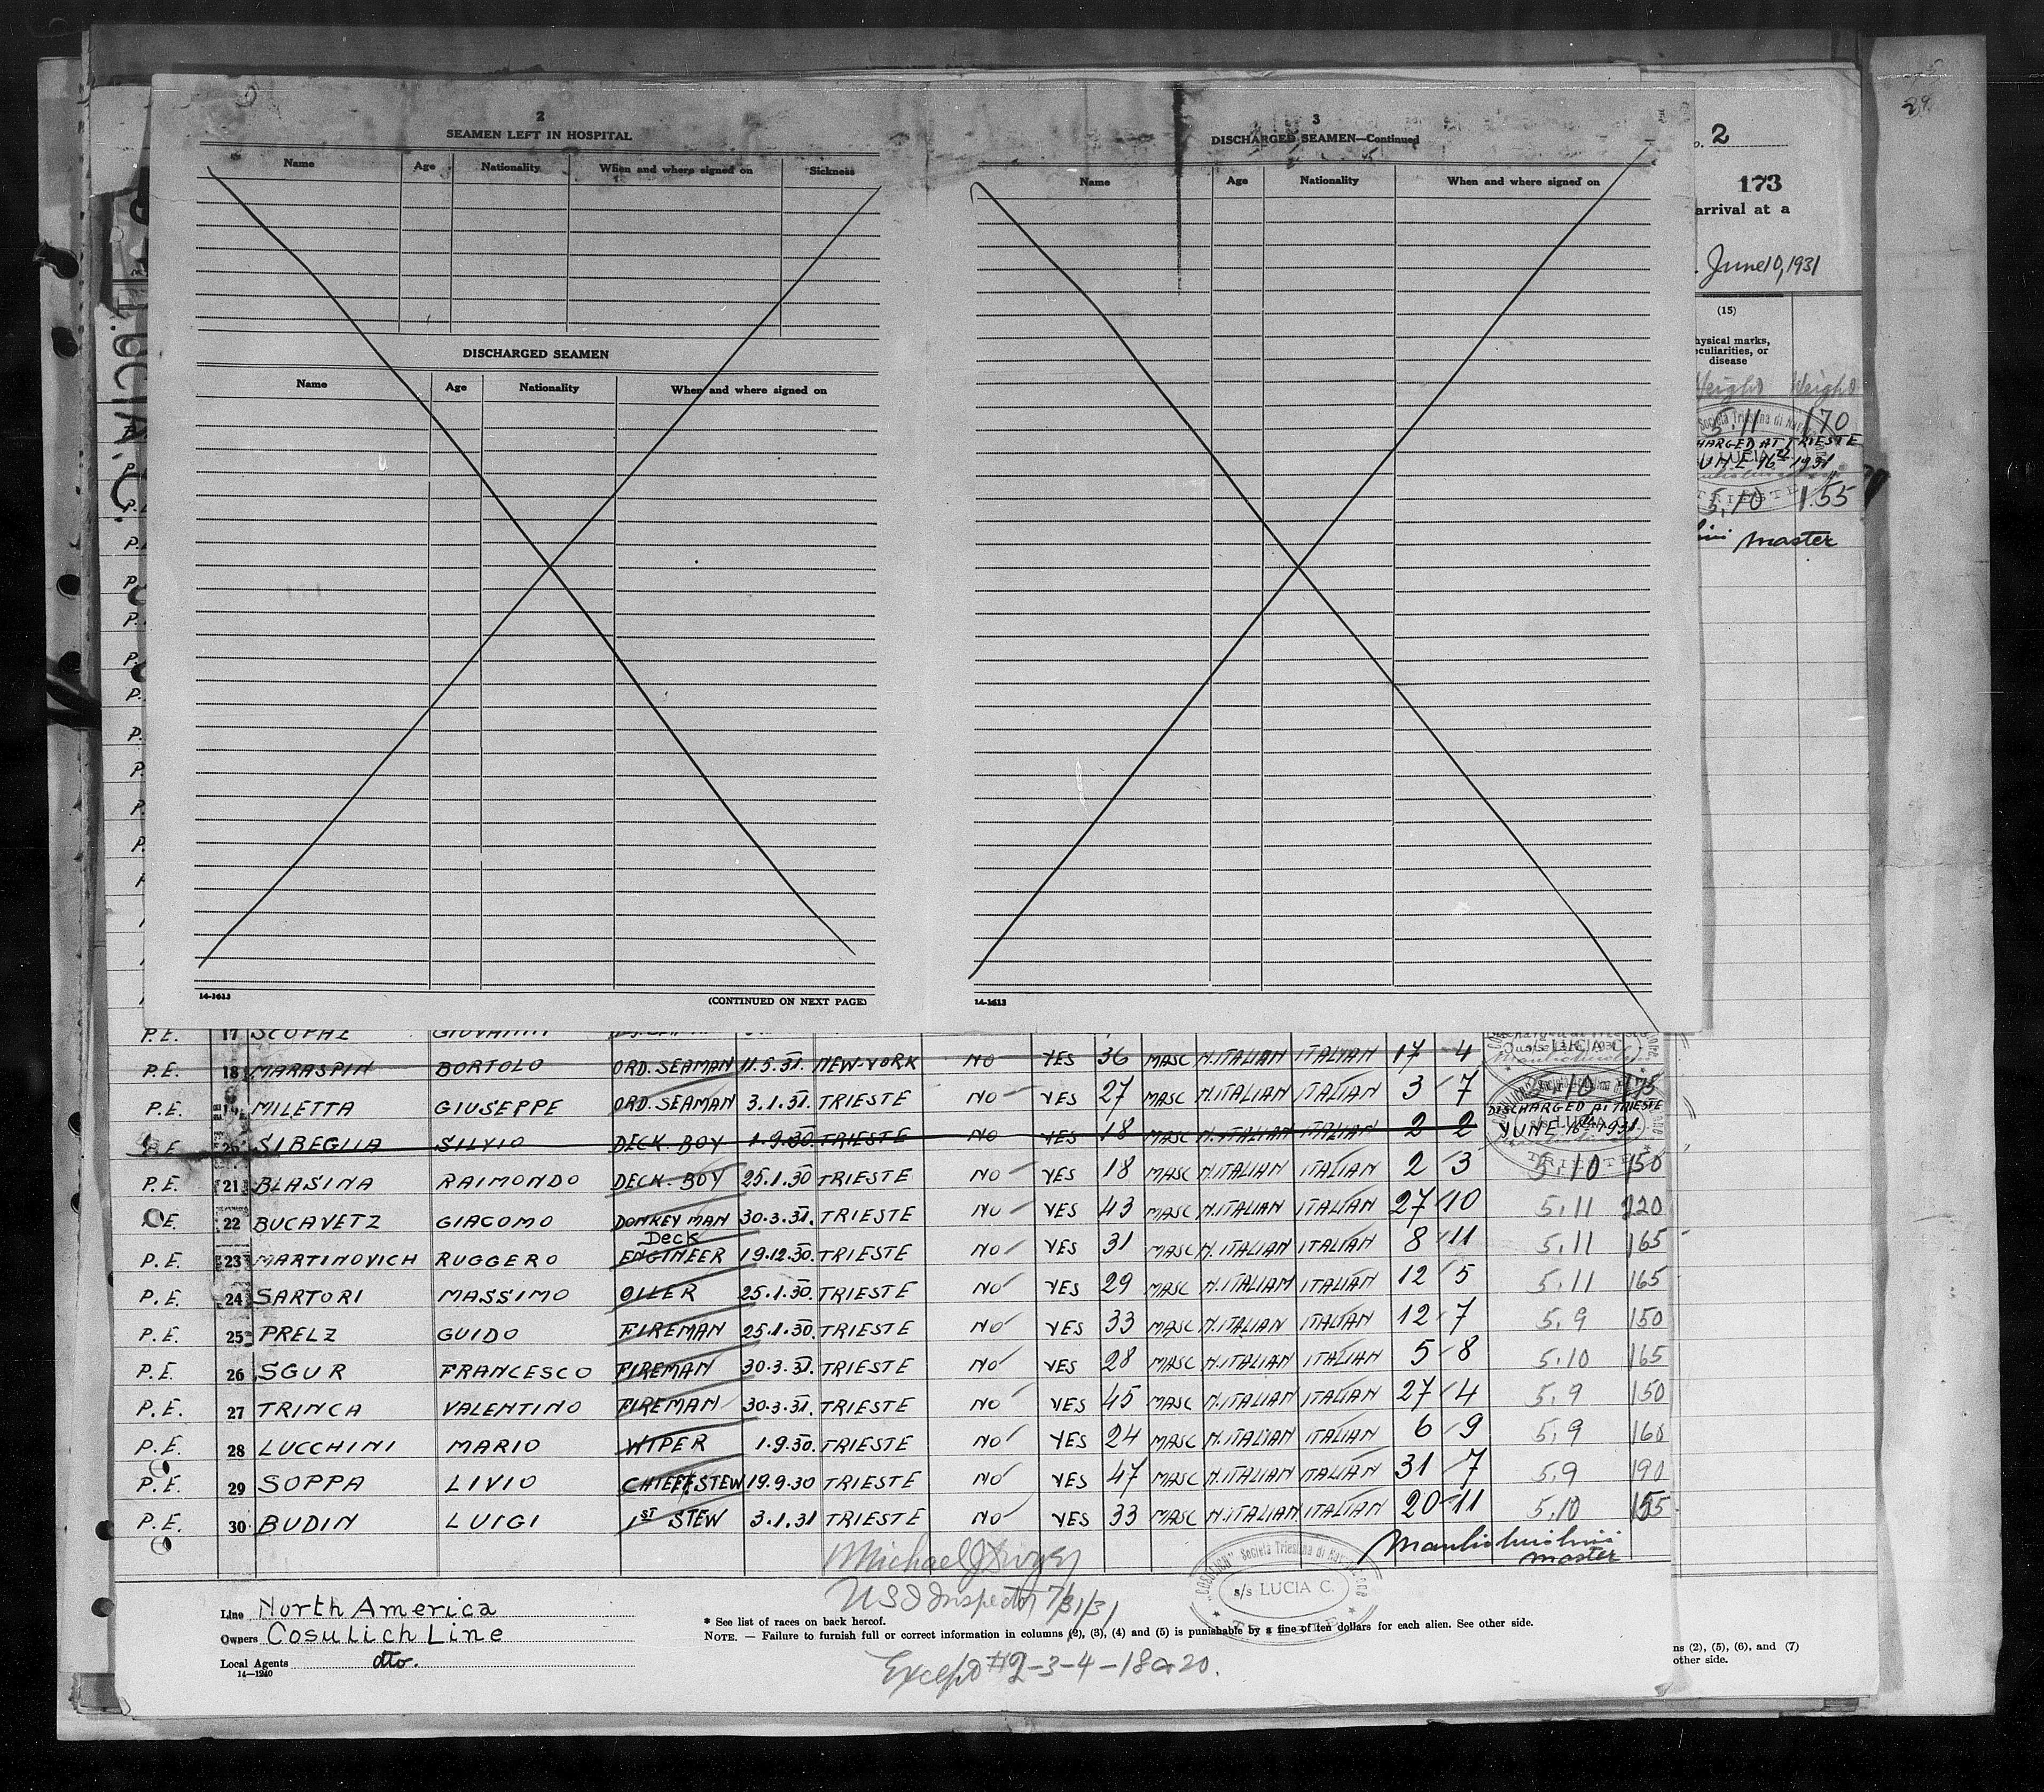 2
SEAMEN LEFT IN HOSPITAL
Name Age Nationality When and where signed on Sickness
DISCHARGED SEAMEN
Name Age Nationality When and where signed on
14-1613 (CONTINUED ON NEXT PAGE)
3
DISCHARGED SEAMEN—Continued
Name Age Nationality When and where signed on
14-1613
2
173
arrival at a
June 10, 1931
(15)
hysical marks,
eculiarities, or
disease
Height Weight
5.11 170
HARGED AT TRIESTE
1931
5.10 155
master
LUCIA C.
P.E. 17 SCOPAZ GIOVANNI
P.E. 18 MARASPIN BORTOLO ORD. SEAMAN 11.5.31. NEW-YORK NO YES 36 MASC N.ITALIAN ITALIAN 17 4
P.E. 19 MILETTA GIUSEPPE ORD. SEAMAN 3.1.31. TRIESTE NO YES 27 MASC N.ITALIAN ITALIAN 3 7 5.10 175
P.E. 20 SIBEGLIA SILVIO DECK. BOY 1.9.30. TRIESTE NO YES 18 MASC N.ITALIAN ITALIAN 2 2 DISCHARGED AT TRIESTE JUNE 16 1931
P.E. 21 BLASINA RAIMONDO DECK. BOY 25.1.30 TRIESTE NO YES 18 MASC N.ITALIAN ITALIAN 2 3 5.10 150
P.E. 22 BUCAVETZ GIACOMO DONKEYMAN 30.3.31. TRIESTE NO YES 43 MASC N.ITALIAN ITALIAN 27 10 5.11 220
P.E. 23 MARTINOVICH RUGGERO Deck ENGINEER 19.12.30. TRIESTE NO YES 31 MASC N.ITALIAN ITALIAN 8 11 5.11 165
P.E. 24 SARTORI MASSIMO OILER 25.1.30. TRIESTE NO YES 29 MASC N.ITALIAN ITALIAN 12 5 5.11 165
P.E. 25 PRELZ GUIDO FIREMAN 25.1.30. TRIESTE NO YES 33 MASC N.ITALIAN ITALIAN 12 7 5.9 150
P.E. 26 SGUR FRANCESCO FIREMAN 30.3.31. TRIESTE NO YES 28 MASC N.ITALIAN ITALIAN 5 8 5.10 165
P.E. 27 TRINCA VALENTINO FIREMAN 30.3.31. TRIESTE NO YES 45 MASC N.ITALIAN ITALIAN 27 4 5.9 150
P.E. 28 LUCCHINI MARIO WIPER 1.9.30. TRIESTE NO YES 24 MASC N.ITALIAN ITALIAN 6 9 5.9 160
P.E. 29 SOPPA LIVIO CHIEF STEW 19.9.30 TRIESTE NO YES 47 MASC N.ITALIAN ITALIAN 31 7 5.9 190
P.E. 30 BUDIN LUIGI 1ST STEW 3.1.31 TRIESTE NO YES 33 MASC N.ITALIAN ITALIAN 20 11 5.10 155
Michael J Dwyer
master
US Inspector 7/31/31
"COSULICH" Società Triestina di Navigazione
s/s LUCIA C.
TRIESTE
Line North America
Owners Cosulich Line
Local Agents dto.
14—1240
* See list of races on back hereof.
NOTE. — Failure to furnish full or correct information in columns (2), (3), (4) and (5) is punishable by a fine of ten dollars for each alien. See other side.
Except #2-3-4-18 & 20.
ns (2), (5), (6), and (7)
other side.